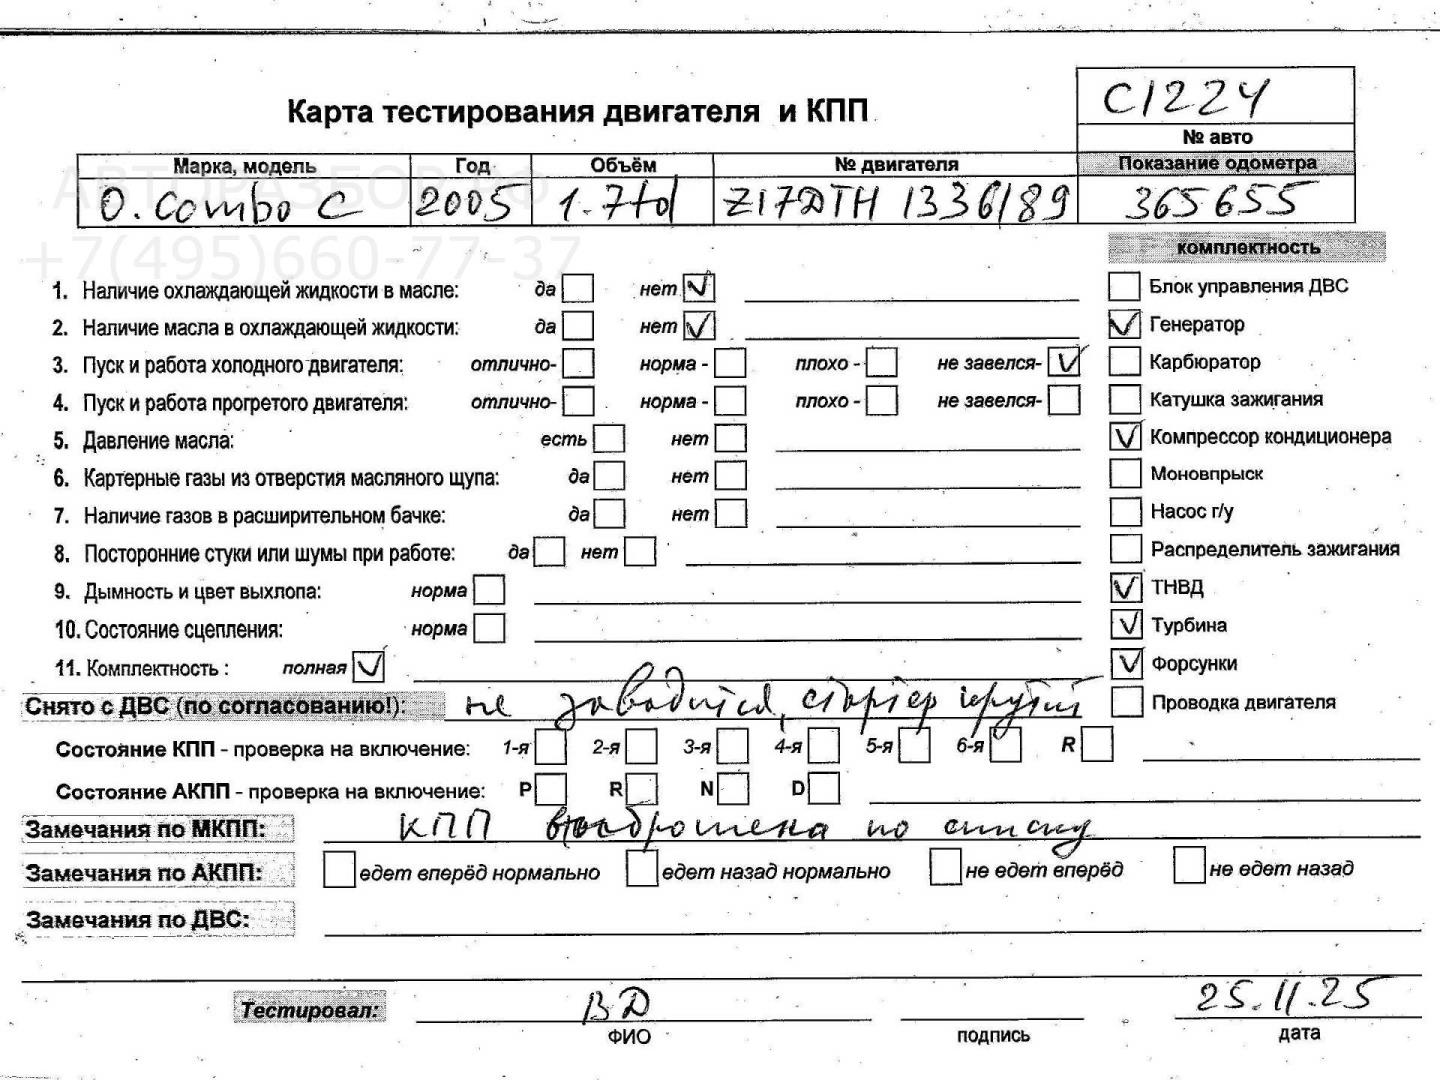 С1224
Карта тестирования двигателя и КПП
№ авто
Марка, модель Год Объём № двигателя Показание одометра
O. Combo C 2005 1.7td Z17DTH 1336189 365655
АВТОРАЗБОР.РФ
+7(495)660-77-37
комплектность
1. Наличие охлаждающей жидкости в масле: да нет ✓ Блок управления ДВС
2. Наличие масла в охлаждающей жидкости: да нет ✓ ✓ Генератор
3. Пуск и работа холодного двигателя: отлично- норма - плохо - не завелся- ✓ Карбюратор
4. Пуск и работа прогретого двигателя: отлично- норма - плохо - не завелся- Катушка зажигания
5. Давление масла: есть нет ✓ Компрессор кондиционера
6. Картерные газы из отверстия масляного щупа: да нет Моновпрыск
7. Наличие газов в расширительном бачке: да нет Насос г/у
8. Посторонние стуки или шумы при работе: да нет Распределитель зажигания
9. Дымность и цвет выхлопа: норма ✓ ТНВД
10. Состояние сцепления: норма ✓ Турбина
11. Комплектность : полная ✓ ✓ Форсунки
Снято с ДВС (по согласованию!): не заводится, стартер крутит Проводка двигателя
Состояние КПП - проверка на включение: 1-я 2-я 3-я 4-я 5-я 6-я R
Состояние АКПП - проверка на включение: P R N D
Замечания по МКПП: КПП выброшена по списку
Замечания по АКПП: едет вперёд нормально едет назад нормально не едет вперёд не едет назад
Замечания по ДВС:
Тестировал: ВД 25.11.25
ФИО подпись дата